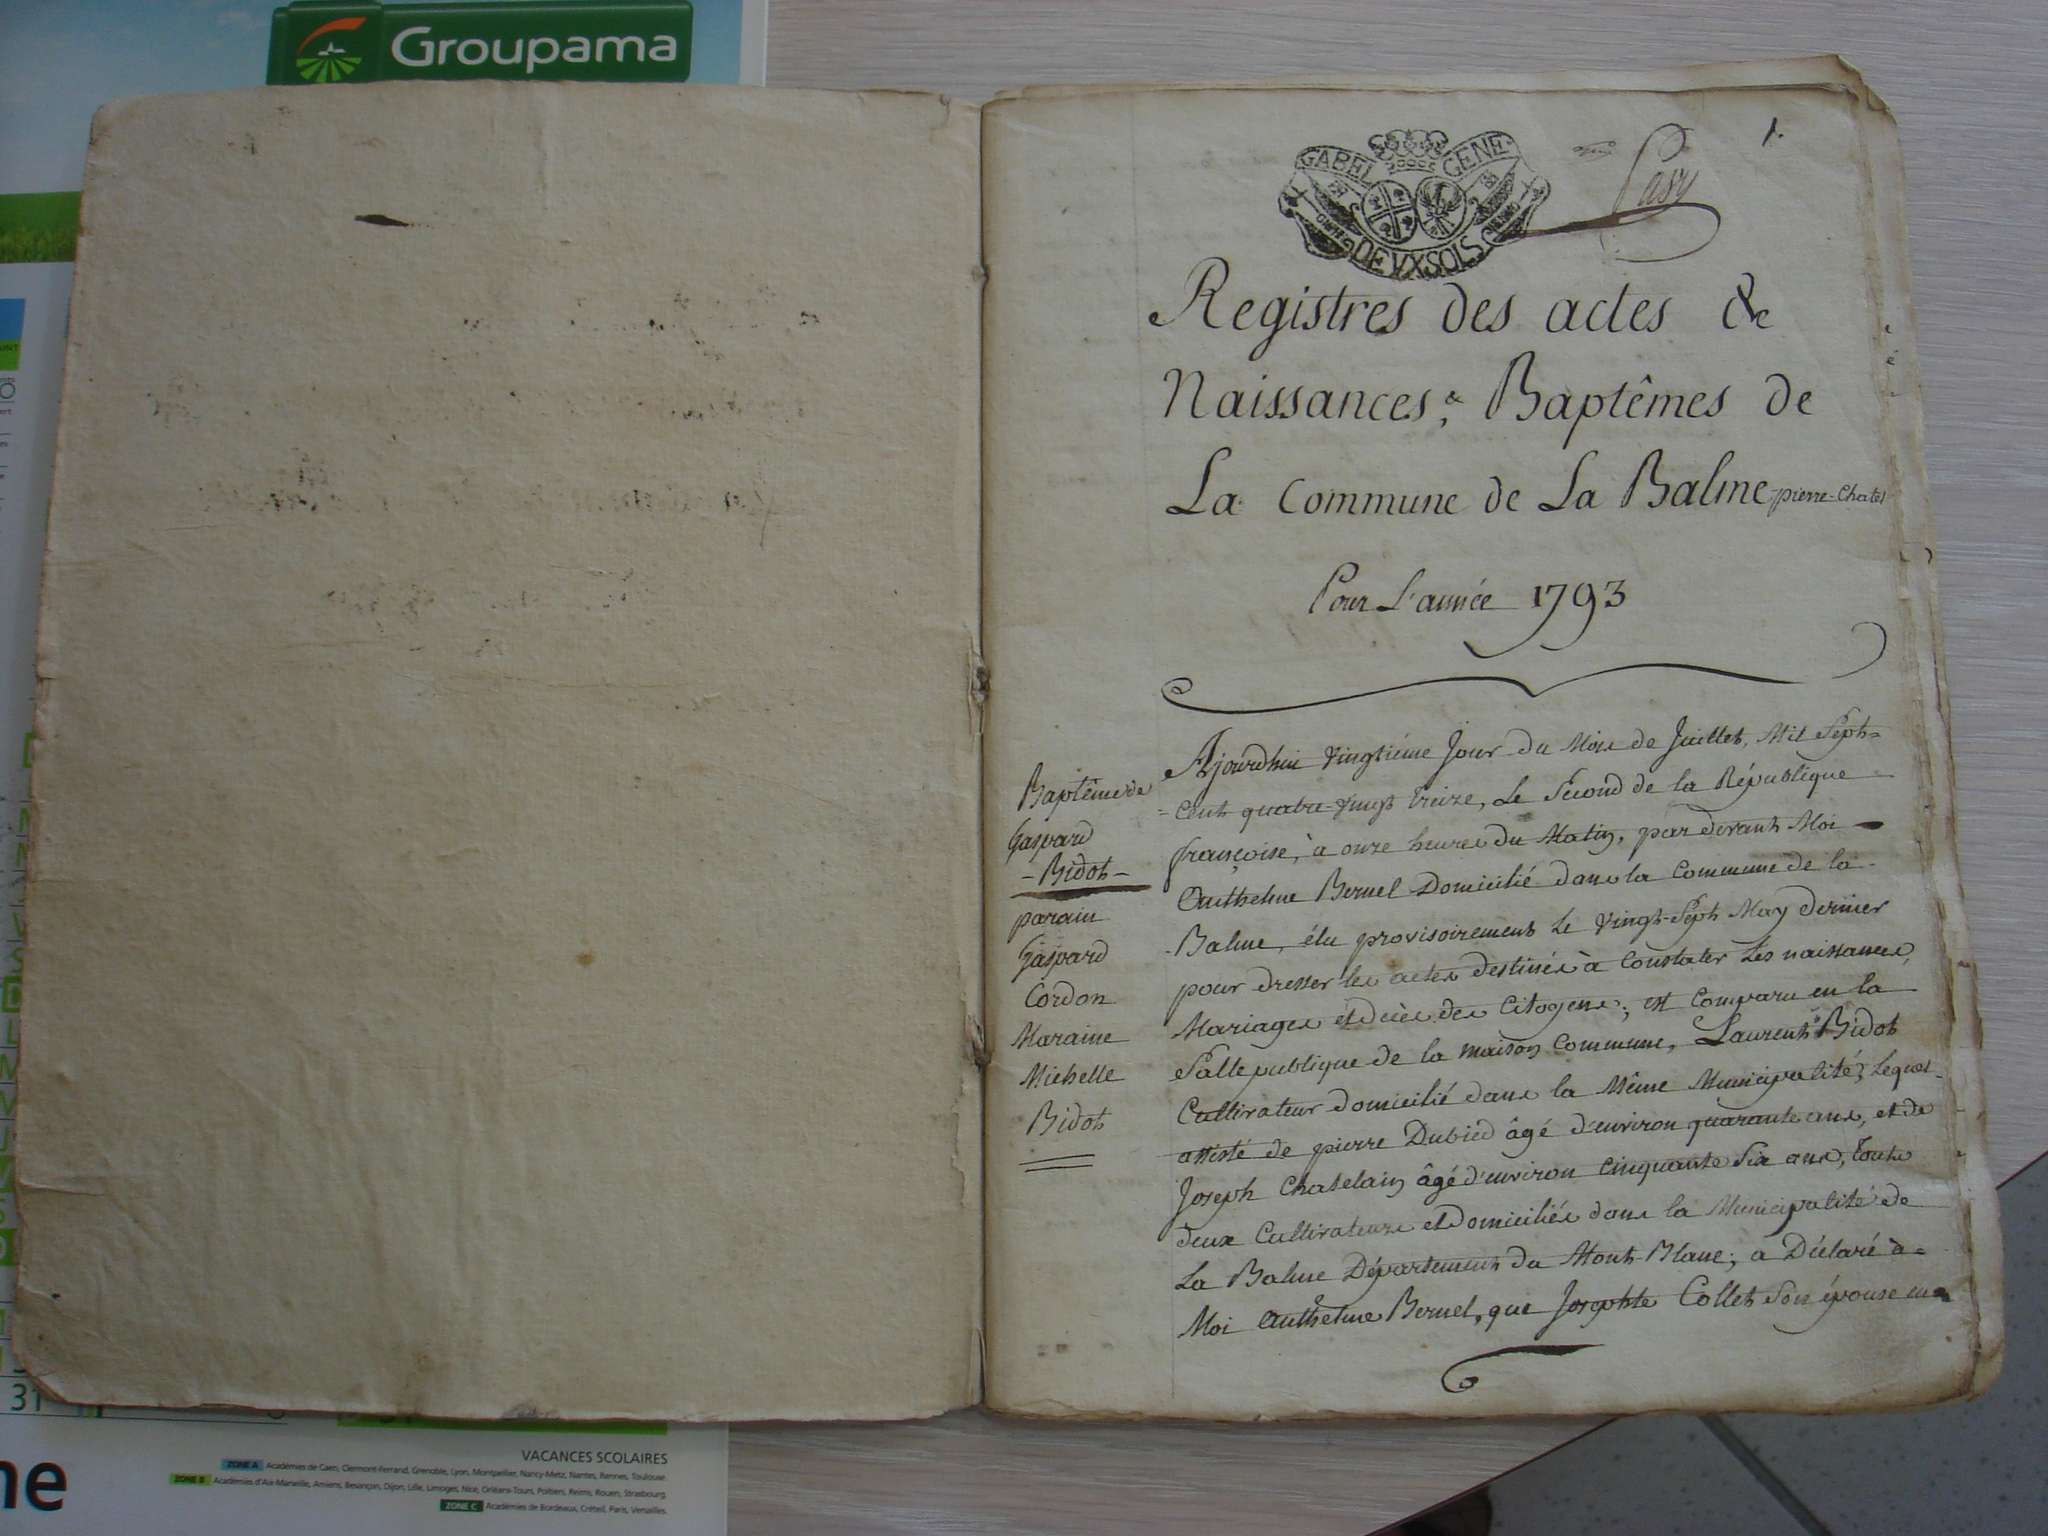 Groupama
1.
GABEL GENE
DEVXSOLS
Registres des actes de
Naissances & Baptêmes de
La Commune de La Balme pierre-Chatel
Pour L'année 1793
Baptême de
Gaspard
- Bidot -
parain
Gaspard
Cordon
Maraine
Michelle
Bidot
Ajourdhui vingtiéme Jour du Mois de Juillet, Mil Sept-
= Cent quatre-vingt treize, Le Second de la République
françoise, à onze heures du Matin, par devant Moi
Anthelme Bernel Domicilié dans la Commune de la
Balme, élu provisoirement le vingt-Sept May dernier
pour dresser les actes destinés à Constater Les naissances,
Mariages et décès des Citoyens; est Comparu en la
Salle publique de la maison Commune, Laurent Bidot
Cultivateur domicilié dans la Même Municipalité; Lequel
assisté de pierre Dubied âgé d'environ quarante ans, et de
Joseph Chatelain âgé d'environ Cinquante Six ans, tout
deux Cultivateurs et domiciliés dans la Municipalité de
La Balme Département du Mont-Blanc; a Déclaré à
Moi Anthelme Bernel, que Josephte Collet Son épouse en
31
VACANCES SCOLAIRES
ZONE A Académies de Caen, Clermont-Ferrand, Grenoble, Lyon, Montpellier, Nancy-Metz, Nantes, Rennes, Toulouse.
ZONE B Académies d'Aix-Marseille, Amiens, Besançon, Dijon, Lille, Limoges, Nice, Orléans-Tours, Poitiers, Reims, Rouen, Strasbourg.
ZONE C Académies de Bordeaux, Créteil, Paris, Versailles.
ne